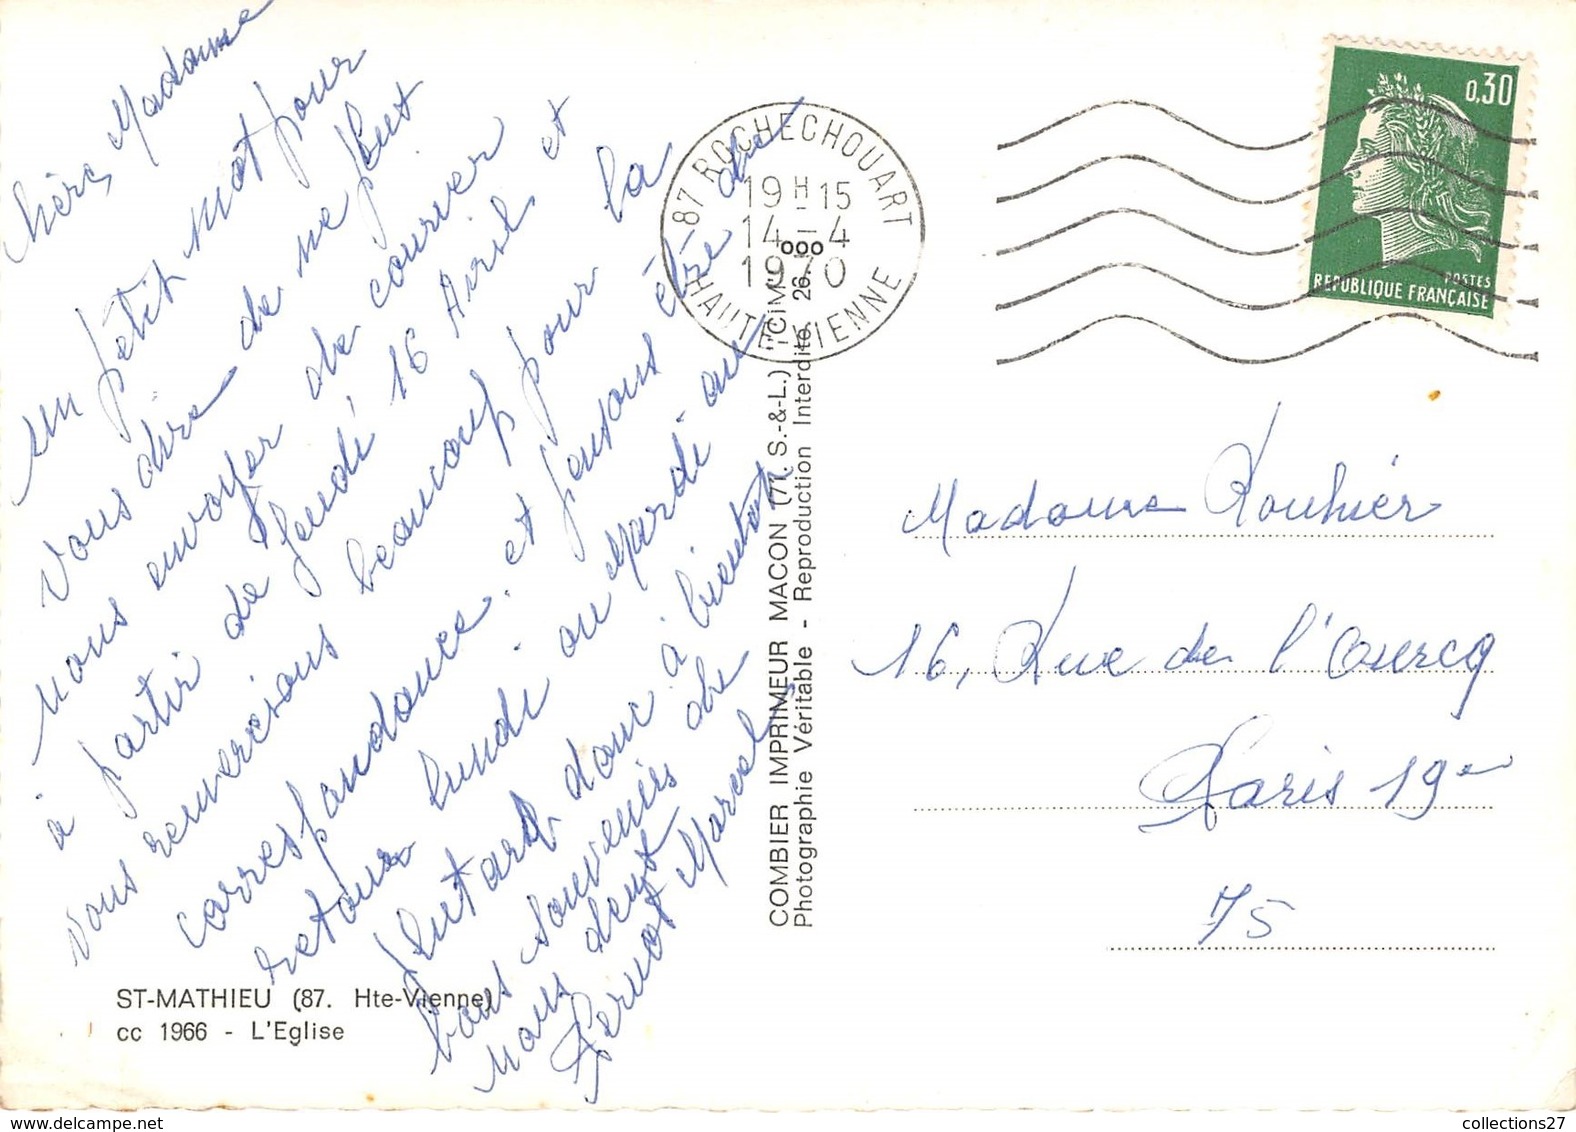 Chère, Madame
un pètit mot pour
vous dire de ne plus
nous envoyer de courier
à partir de Jeudi 16 Avril et
vous remercions beaucoup pour la
correspandance. et pensons être de
retour lundi ou Mardi au
plutard donc à bientôt
bons souvenirs de
nous deux
Marcel
ST-MATHIEU (87. Hte-Vienne)
cc 1966 - L'Eglise
COMBIER IMPRIMEUR MACON (71. S.-&-L.) "CIM"
Photographie Véritable - Reproduction Interdite
87 ROCHECHOUART
19H15
14-4
1970
HAUTE-VIENNE
0,30
POSTES
REPUBLIQUE FRANÇAISE
Madame Rouhier
16, Rue de l'Ourcq
Paris 19e
75
collections27